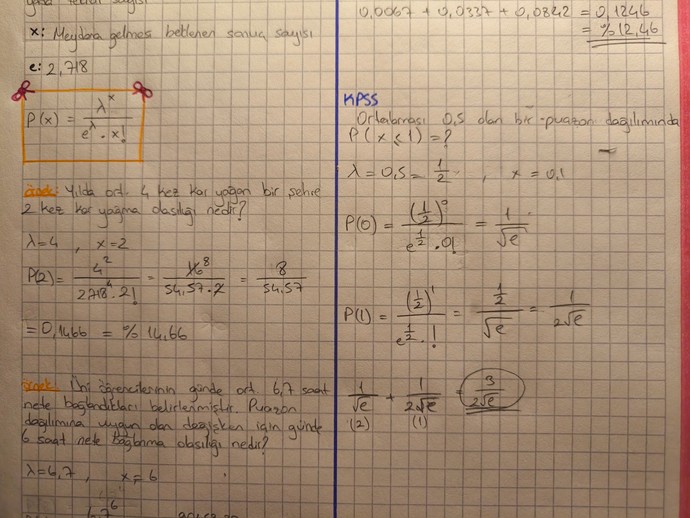 x: Meydana gelmesi beklenen sonuç sayısı
e: 2,718
P(x) = λ^x / e^λ · x!
örnek: Yılda ort. 4 kez kar yağan bir şehre
2 kez kar yağma olasılığı nedir?
λ=4 , x=2
P(2) = 4² / 2718⁴ · 2! = 16 8 / 54,57 · 2 = 8 / 54,57
= 0,1466 = % 14,66
örnek: Üni öğrencilerinin günde ort. 6,7 saat
nete bağlandıkları belirlenmiştir. Puazon
dağılımına uygun olan değişken için günde
6 saat nete bağlanma olasılığı nedir?
λ=6,7 , x=6
6,7⁶
0,0067 + 0,0337 + 0,0842 = 0,1246
= % 12,46
KPSS
Ortalaması 0,5 olan bir puazon dağılımında
P(x ≤ 1) = ?
λ = 0,5 = 1/2 , x = 0,1
P(0) = (1/2)⁰ / e^1/2 · 0! = 1 / √e
P(1) = (1/2)¹ / e^1/2 · ! = 1/2 / √e = 1 / 2√e
1/√e + 1/2√e = 3/2√e
(2) (1)